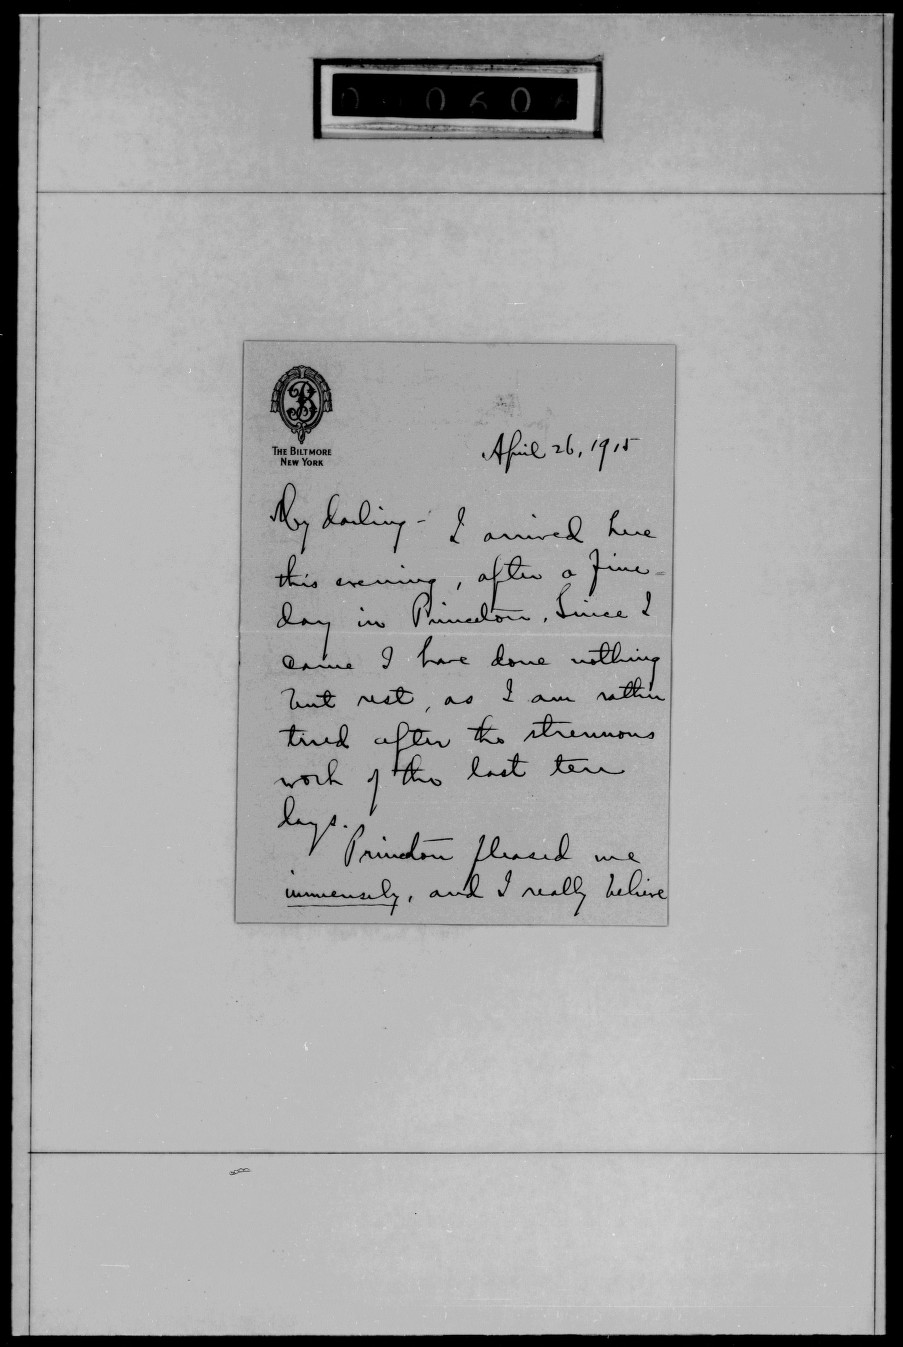 0 0 6 0
B
THE BILTMORE
NEW YORK
April 26, 1915
My darling - I arrived here
this evening, after a fine
day in Princeton. Since I
came I have done nothing
but rest, as I am rather
tired after the strenuous
work of the last ten
days.
Princeton pleased me
immensely, and I really believe